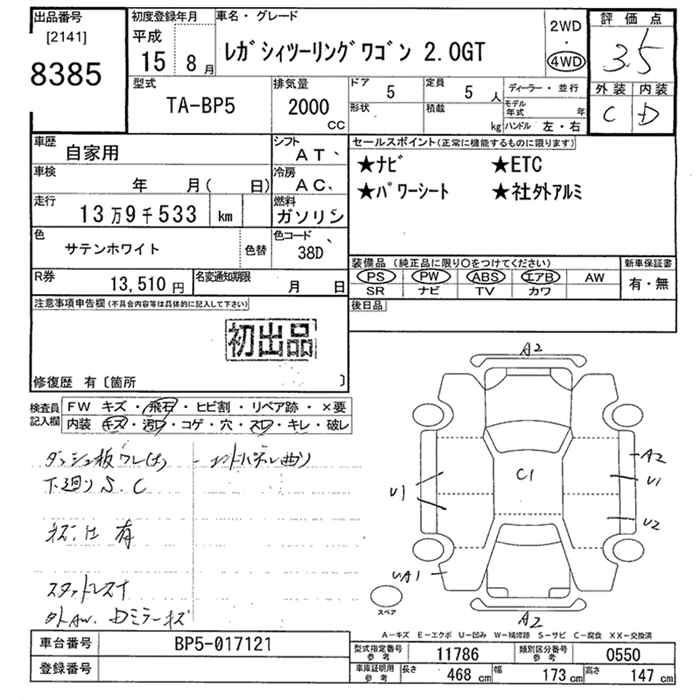 出品番号
[2141]
8385
初度登録年月
平成
15 8月
車名・グレード
レガシィツーリングワゴン 2.0GT
2WD
・
4WD
評価点
3.5
外装 内装
C D
型式
TA-BP5
排気量
2000
CC
ドア
5
定員
5人
形状
積載
kg
ディーラー・並行
モデル年式 年
ハンドル 左・右
車歴
自家用
シフト
AT、
車検
年 月( 日)
冷房
AC、
走行
13万9千533 km
燃料
ガソリン
色
サテンホワイト
色替
色コード
38D
R券
13,510円
名変通知期限
月 日
セールスポイント(正常に機能するものに限り)
★ナビ ★ETC
★パワーシート ★社外アルミ
装備品(純正品に限り〇をつけてください)
新車保証書
PS PW ABS エアB AW
SR ナビ TV カワ
有・無
後日品
注意事項申告欄(不具合内容等は具体的に記入して下さい)
初出品
修復歴 有〔箇所 〕
検査員記入欄
FW キズ・飛石・ヒビ割・リペア跡・×要
内装 キズ・汚レ・コゲ・穴・スレ・キレ・破レ
下廻りS.C
ネズミ 有
スタッドレス
A2
C1
A2
U1
U1
U2
UA1
A2
スペア
A-キズ E-エクボ U-凹み W-補修跡 S-サビ C-腐食 XX-交換済
車台番号
BP5-017121
登録番号
型式指定番号 参考
11786
類別区分番号 参考
0550
車庫証明用 参考
長さ 468 cm
幅 173 cm
高さ 147 cm